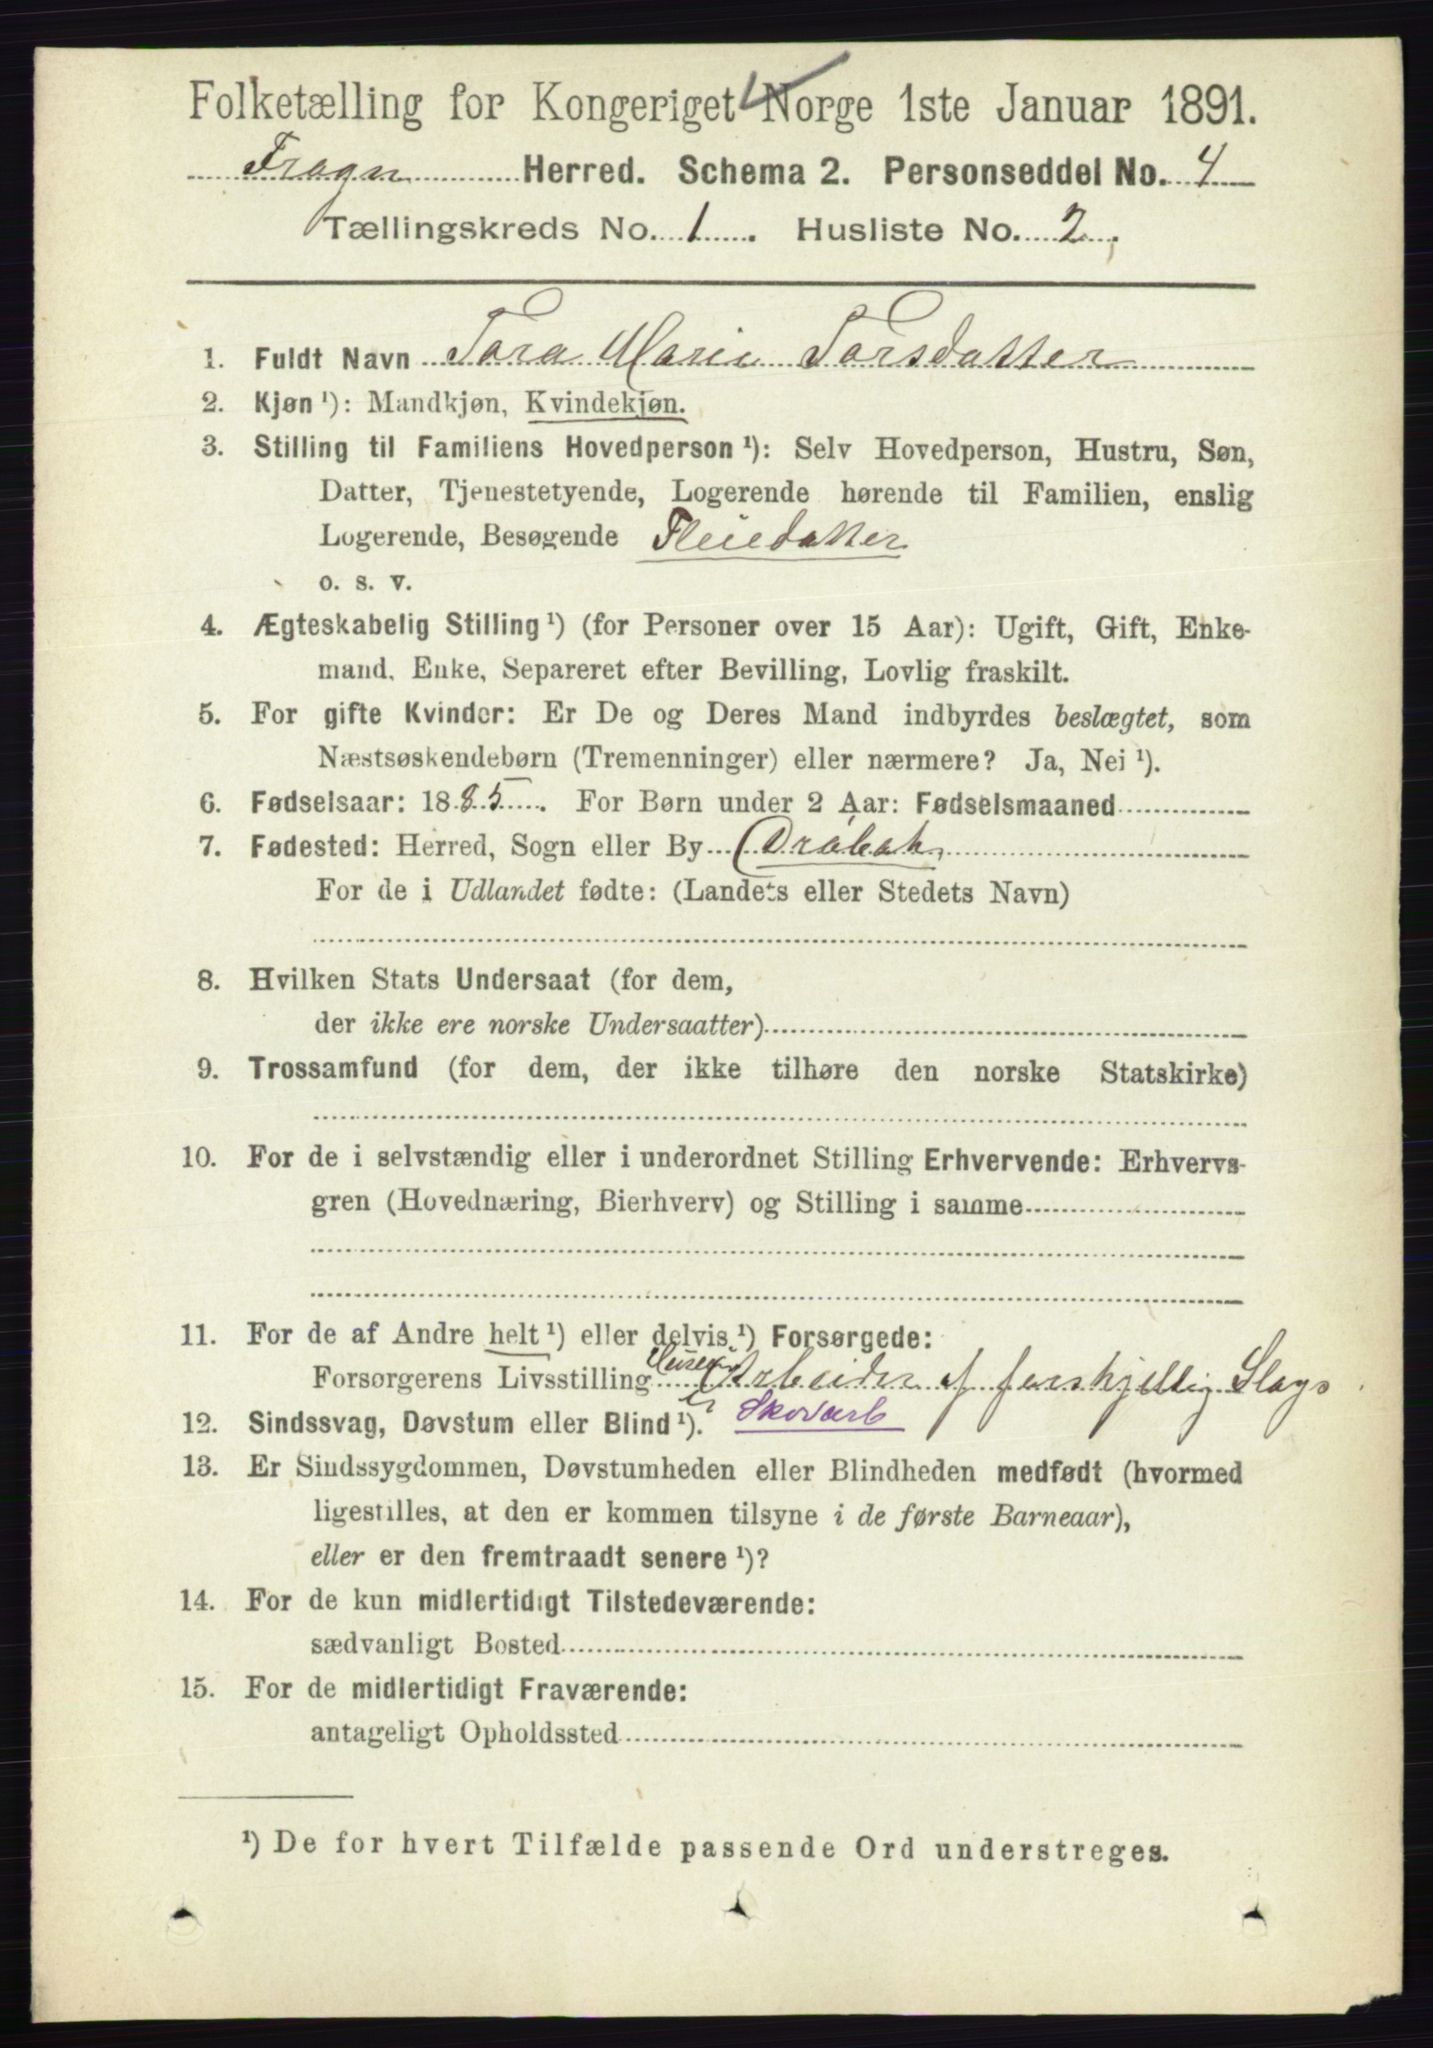 Folketælling for Kongeriget Norge 1ste Januar 1891.
Frogn Herred. Schema 2. Personseddel No. 4
Tællingskreds No. 1. Husliste No. 2.
1. Fuldt Navn Tora Marie Torsdatter
2. Kjøn ¹): Mandkjøn, Kvindekjøn.
3. Stilling til Familiens Hovedperson ¹): Selv Hovedperson, Hustru, Søn,
Datter, Tjenestetyende, Logerende hørende til Familien, enslig
Logerende, Besøgende Pleiedatter
o. s. v.
4. Ægteskabelig Stilling ¹) (for Personer over 15 Aar): Ugift, Gift, Enke-
mand, Enke, Separeret efter Bevilling, Lovlig fraskilt.
5. For gifte Kvinder: Er De og Deres Mand indbyrdes beslægtet, som
Næstsøskendebørn (Tremenninger) eller nærmere? Ja, Nei ¹).
6. Fødselsaar: 1885. For Børn under 2 Aar: Fødselsmaaned
7. Fødested: Herred, Sogn eller By Drøbak
For de i Udlandet fødte: (Landets eller Stedets Navn)
8. Hvilken Stats Undersaat (for dem,
der ikke ere norske Undersaatter)
9. Trossamfund (for dem, der ikke tilhøre den norske Statskirke)
10. For de i selvstændig eller i underordnet Stilling Erhvervende: Erhvervs-
gren (Hovednæring, Bierhverv) og Stilling i samme
11. For de af Andre helt ¹) eller delvis ¹) Forsørgede:
Forsørgerens Livsstilling Huseier Arbeider af forskjellig Slags
12. Sindssvag, Døvstum eller Blind ¹). Skovarb
13. Er Sindssygdommen, Døvstumheden eller Blindheden medfødt (hvormed
ligestilles, at den er kommen tilsyne i de første Barneaar),
eller er den fremtraadt senere ¹)?
14. For de kun midlertidigt Tilstedeværende:
sædvanligt Bosted
15. For de midlertidigt Fraværende:
antageligt Opholdssted
¹) De for hvert Tilfælde passende Ord understreges.